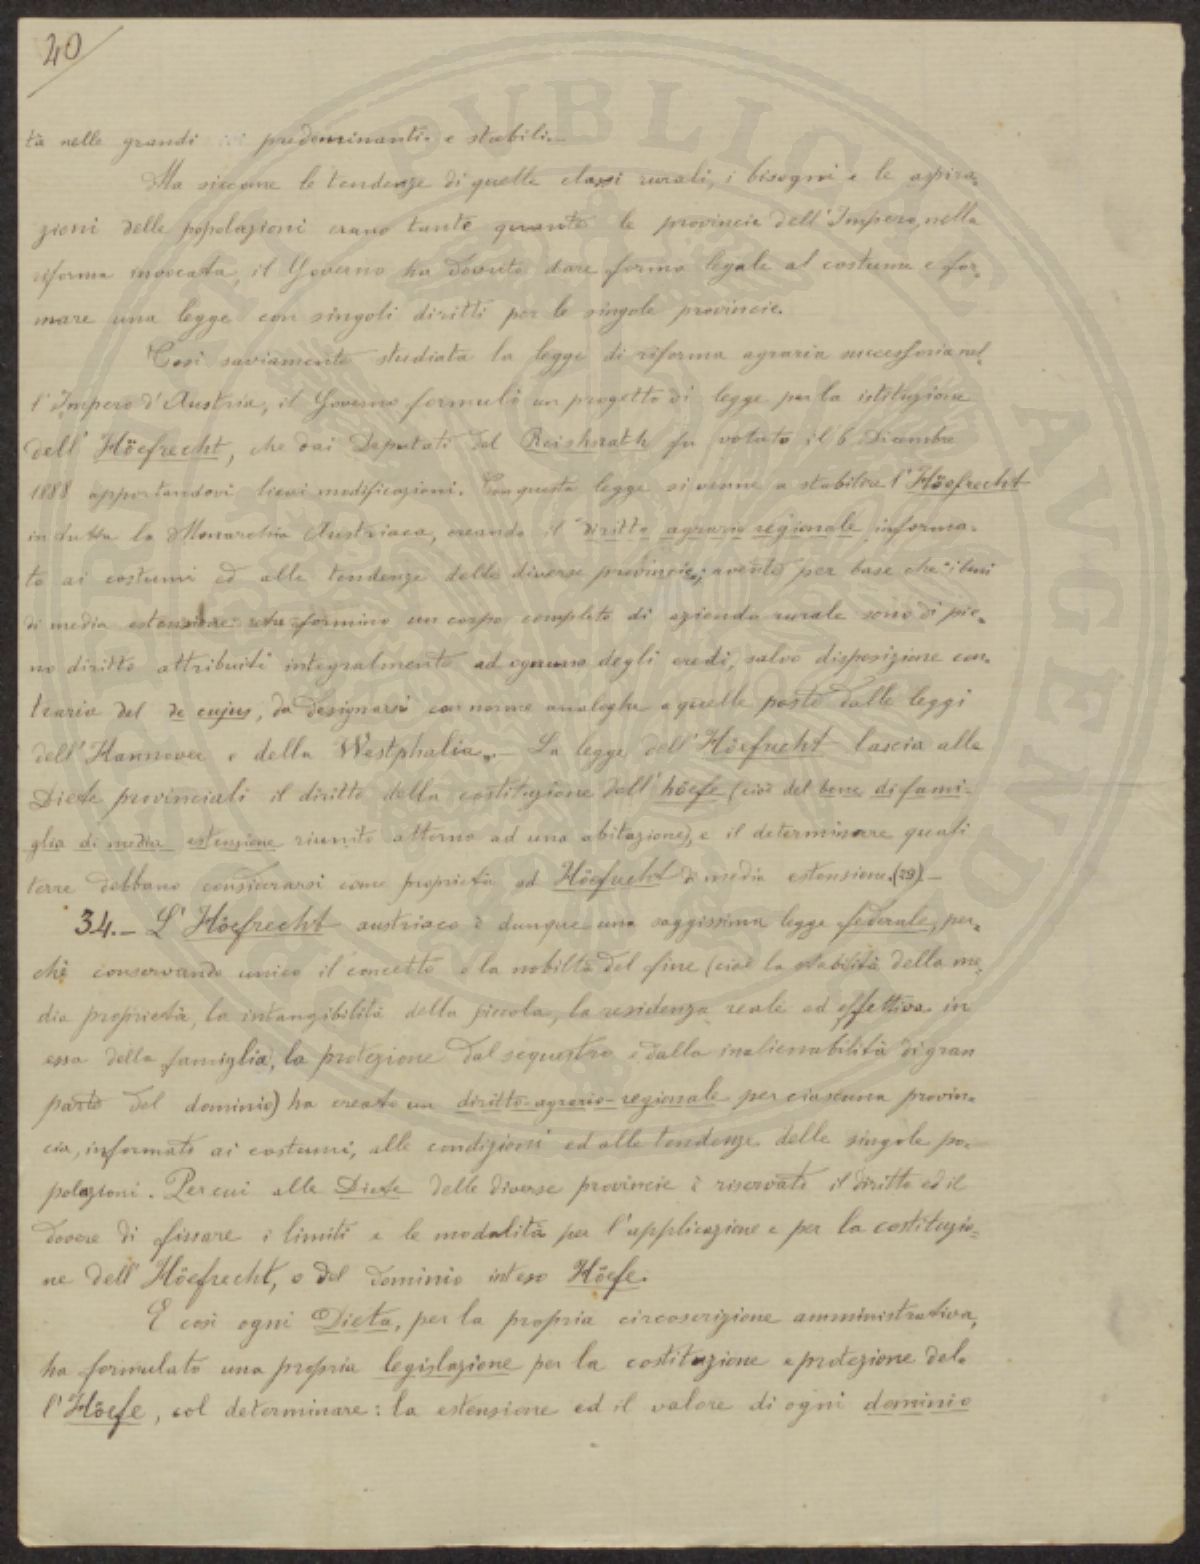 40
tà nelle grandi predominanti e stabili.—
Ma siccome le tendenze di quelle classi rurali, i bisogni e le aspira-
zioni delle popolazioni erano tante quante le provincie dell'Impero, nella
riforma invocata, il Governo ha dovuto dare forma legale al costume e for-
mare una legge con singoli diritti per le singole provincie.
Così saviamente studiata la legge di riforma agraria successoria nel-
l'Impero d'Austria, il Governo formulò un progetto di legge per la istituzione
dell'Höefrecht, che dai Deputati del Reishrath fu votato il 6 Dicembre
1888 apportandovi lievi modificazioni. Con questa legge si venne a stabilire l'Höefrecht
in tutta la Monarchia Austriaca, creando il diritto agrario regionale informa-
to ai costumi ed alle tendenze delle diverse provincie; avente per base che i beni
di media estensione che formino un corpo completo di azienda rurale sono di pie-
no diritto attribuiti integralmente ad ognuno degli eredi, salvo disposizione con-
traria del de cujus, da designarsi con norme analoghe a quelle poste dalle leggi
dell'Hannover e della Westphalia.— La legge dell'Höefrecht lascia alle
Diete provinciali il diritto della costituzione dell'höefe (cioè del bene di fami-
glia di media estensione riunito attorno ad una abitazione), e il determinare quali
terre debbano considerarsi come proprietà ad Höefrecht di media estensione.(29)—
34.— L'Höefrecht austriaco è dunque una saggissima legge federale, per-
chè conservando unico il concetto e la nobiltà del fine (cioè la stabilità della me-
dia proprietà, la intangibilità della piccola, la residenza reale ed effettiva in
essa della famiglia, la protezione dal sequestro e dalla inalienabilità di gran
parte del dominio) ha creato un diritto-agrario-regionale per ciascuna provin-
cia, informato ai costumi, alle condizioni ed alle tendenze delle singole po-
polazioni. Per cui alle Diete delle diverse provincie è riservato il diritto ed il
dovere di fissare i limiti e le modalità per l'applicazione e per la costituzio-
ne dell'Höefrecht, o del dominio inteso Höefe.
E così ogni Dieta, per la propria circoscrizione amministrativa,
ha formulato una propria legislazione per la costituzione e protezione del-
l'Höefe, col determinare: la estensione ed il valore di ogni dominio